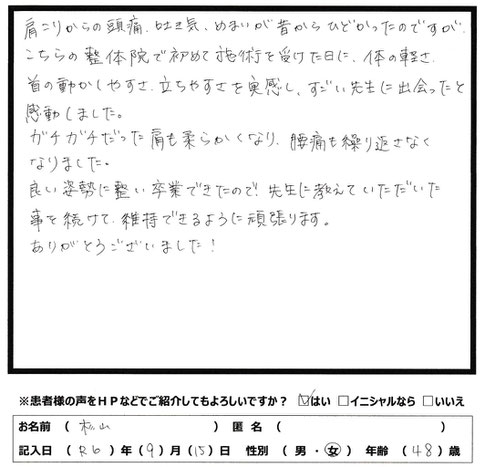 肩こりからの頭痛、吐き気、めまいが昔からひどかったのですが、
こちらの整体院で初めて施術を受けた日に、体の軽さ、
首の動かしやすさ、立ちやすさを実感し、すごい先生に出会ったと
感動しました。
ガチガチだった肩も柔らかくなり、腰痛も繰り返さなく
なりました。
良い姿勢に整い卒業できたので、先生に教えていただいた
事を続けて、維持できるように頑張ります。
ありがとうございました！
※患者様の声をＨＰなどでご紹介してもよろしいですか？ ☑はい □イニシャルなら □いいえ
お名前 （ 杉山 ） 匿名 （ ）
記入日 （ R6 ）年（ 9 ）月（ 15 ）日 性別 （ 男 ・ 女 ） 年齢 （ 48 ）歳